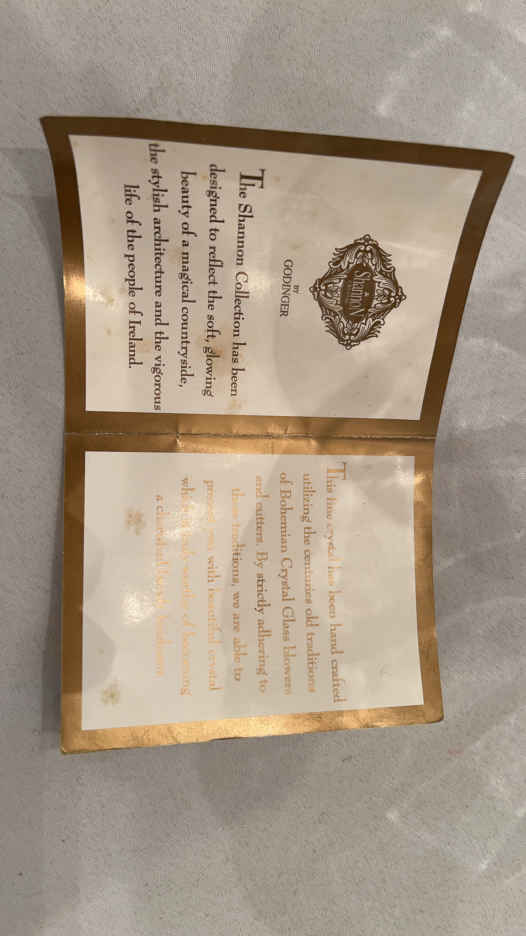 Shannon
BY
GODINGER
The Shannon Collection has been
designed to reflect the soft, glowing
beauty of a magical countryside,
the stylish architecture and the vigorous
life of the people of Ireland.
This fine crystal has been hand crafted
utilizing the centuries old traditions
of Bohemian Crystal Glass blowers
and cutters. By strictly adhering to
these traditions, we are able to
present you with beautiful crystal
which is truly worthy of becoming
a cherished